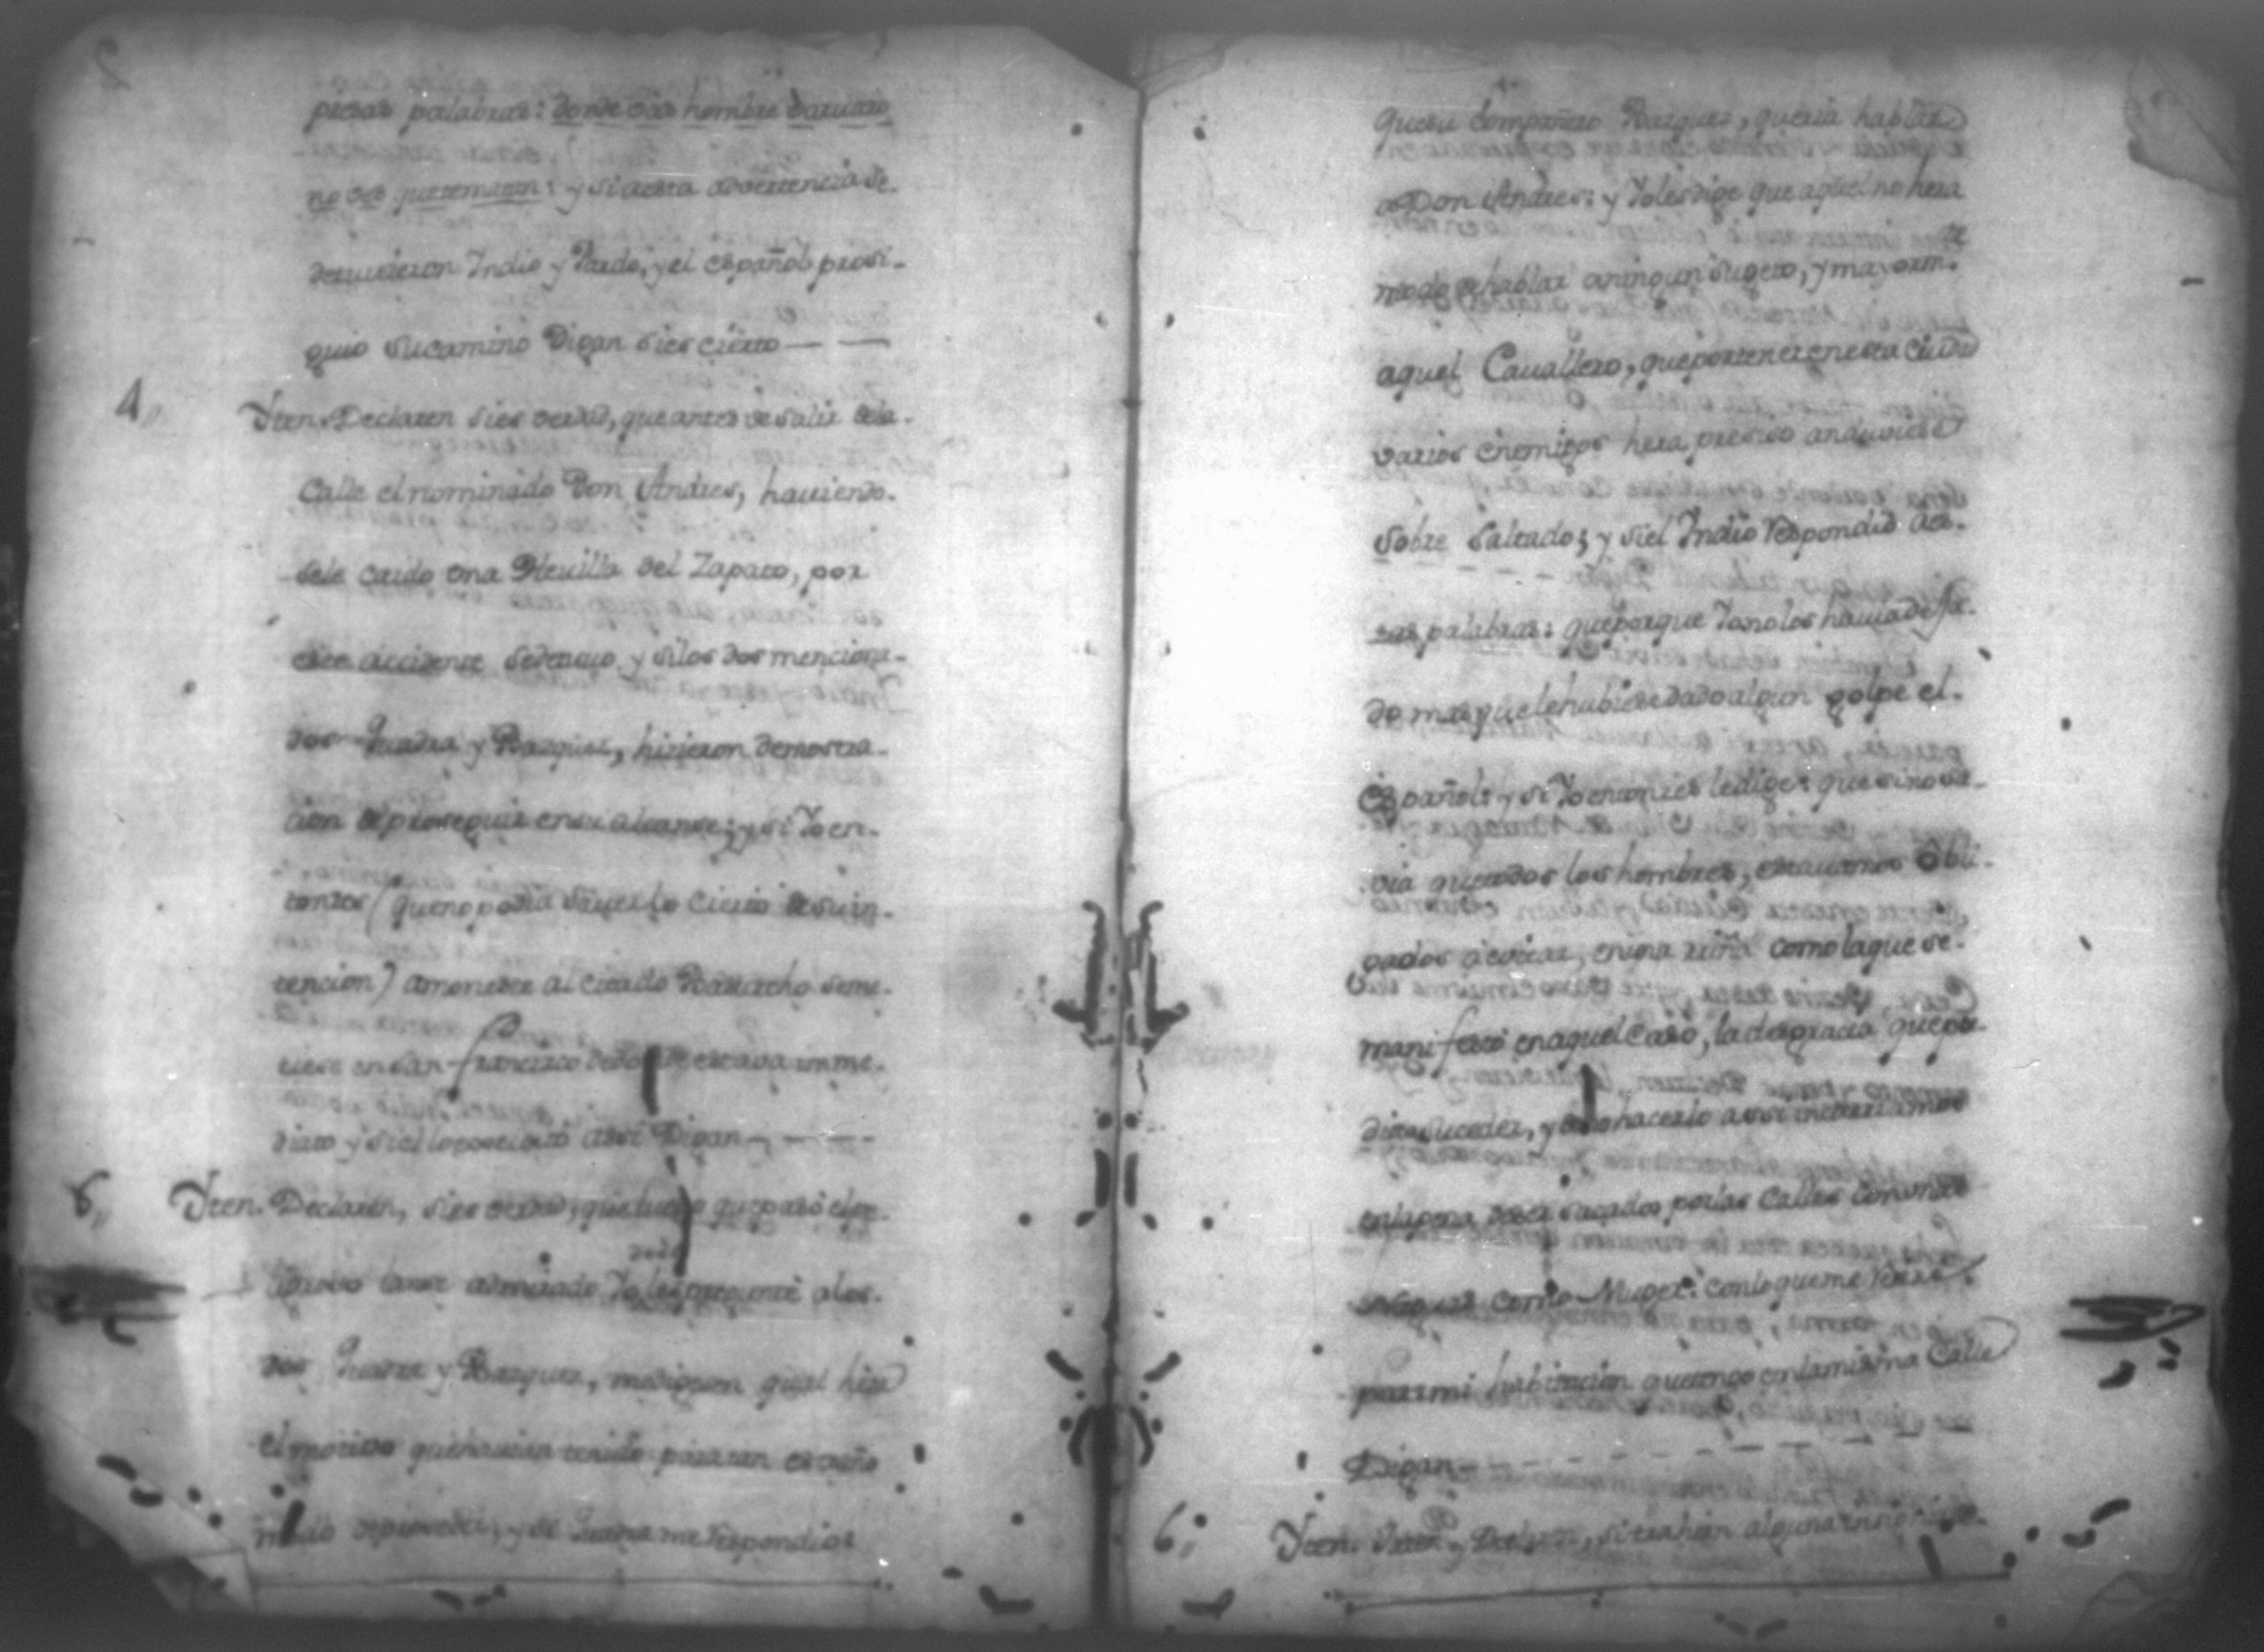 2
presas palabras: donde vas hombre
no ves que te matan: y si a esta advertencia se
detuvieron Indio y Pardo, y el español prosi-
guio su camino Digan si es cierto — —
4,, Yten. Declaren si es verdad, que antes de salir dela
Calle el nominado Don Andres, haviendo-
sele caido una Hevilla del Zapato, por
este accidente se detuvo y silos dos menciona-
dos Juarez y Bazquez, hizieron demostra-
cion de proseguir en su alcanse; y si Yo en-
tonzes (que no podia saver lo cierto de su in-
tencion) amoneste al citado Borracho seme-
tiese en San francisco de estava imme-
diato y si el lo executó assi Digan — — — —
5,, Yten. Declaren, si es verdad, que luego que pasó el
lanse admirado Yo les pregunté alos
dos Juarez y Bazquez, medigesen qual hera
el motivo que havian tenido para tan estraño
modo de proceder, y si Juarez me respondio:
que su Compañero Bazquez, queria hablar
a Don Andres: y Yo les dige que aquel no hera
modo de hablar aningun sugeto, y mayorm.te
aquel Cavallero, que por tener en esta Ciudad
varios enemigos hera preciso anduviese
sobre saltado; y si el Indio respondio
palabras: que porque Yo no los havia dejá-
do mas que le hubiese dado algun golpe el
Español: y si Yo entonzes le dige: que si no sa-
via que todos los hombres, estavamos obli-
gados a evitar, en una riña como la que se
manifesto en aquel Caso, la desgracia que pu-
diera suceder, y no hacerlo assi incurriamos
en la pena de ser sacados por las Calles con unas
Naguas como Muger: con lo que me retiré
para mi habitacion que tengo en la misma Calle
Digan — — — — — — —
6,, Yten. Declaren, si trahian alguna